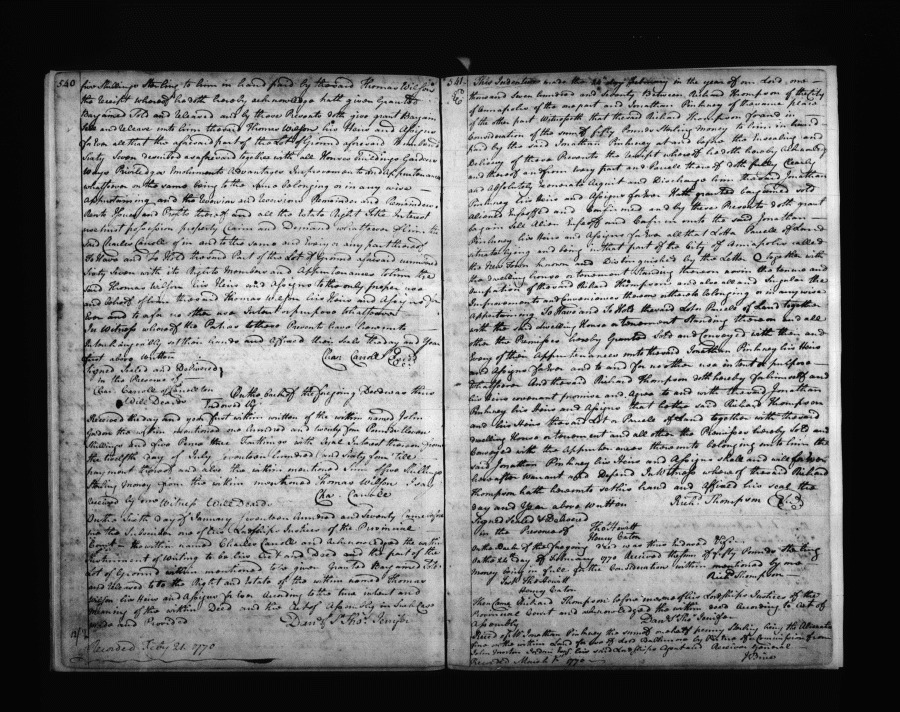 540
five Shillings Sterling to him in hand paid by the said Thomas Wilson
the receipt whereof he doth hereby acknowledge hath given Granted
Bargained Sold and Released and by these Presents doth give grant Bargain
Sell and Release unto him the said Thomas Wilson his Heirs and Assigns
for Ever all that the aforesaid part of the Lot of Ground aforesaid Numbered
Sixty Seven described as aforesaid together with all Houses Buildings Gardens
Ways Priviledges Emoluments Advantages Improvements and Appurtenances
whatsoever to the same being to the same belonging or in any wise
appertaining and the Reversion and Reversions Remainder and Remainders
Rents Issues and Profits thereof and all the Estate Right Title Interest
use trust possession property Claim and Demand whatsoever of him the
said Charles Carroll of in and to the same and Every or any part thereof
To Have and To Hold the said Part of the Lot of Ground aforesaid numbered
Sixty Seven with its Rights Members and Appurtenances to him the
said Thomas Wilson his Heirs and Assigns to the only proper use
and behoof of him the said Thomas Wilson his Heirs and Assigns for
Ever and to and for no other use Intent or purpose Whatsoever
In Witness whereof the Parties to these Presents have hereunto
Interchangeably set their hands and affixed their Seals the day and Year
first above Written
Char Carroll
Signed Sealed and Delivered
in the Presence of
Char Carroll of Carrollton
Will Deards
On the back of the foregoing Deed was thus
Indorsed Viz.
Received the day and year first within written of the within named John
the within mentioned one Hundred and twenty five Pounds Eleven
Shillings and five Pence three Farthings with Legal Interest thereon from
the twelfth day of July Seventeen Hundred and Sixty till
payment thereof and also the within mentioned Sum of five Shillings
Sterling money from the within mentioned Thomas Wilson I say
Received by me
Cha. Carroll
Witness Will Deards
On the Sixth day of January Seventeen Hundred and Seventy Came before
me the Subscriber one of his Lordships Justices of the Provincial
Court the within named Charles Carroll and acknowledged the within
Instrument of Writing to be his Act and deed and the part of the
Lot of Ground within mentioned to be given Granted Bargained Sold
and Released to be the Right and Estate of the within named Thomas
Wilson his Heirs and Assigns for Ever According to the true intent and
meaning of the within Deed and the Act of Assembly in Such Case
made and Provided
Danl. of St. Thos. Jenifer
Recorded Feby 21. 1770
541
This Indenture made the 24th day February in the year of our Lord, one
thousand Seven hundred and Seventy Between Richard Thompson of the City
of Annapolis of the one part and Jonathan Pinkney of the same place
of the other part Witnesseth that the said Richard Thompson for and in
Consideration of the sum of fifty Pounds Sterling money to him in hand
paid by the said Jonathan Pinkney at and before the Ensealing and
Delivery of these Presents the receipt whereof he doth hereby Acknowledge
and thereof and from every part and Parcel thereof doth fully Clearly
and Absolutely Exonerate Acquit and Discharge him the said Jonathan
Pinkney his Heirs and Assigns for Ever Hath granted bargained sold
Aliened Enfeoffed and Confirmed and by these Presents doth grant
bargain Sell Alien Enfeoff and Confirm unto the said Jonathan
Pinkney his Heirs and Assigns for Ever all that Lott or Parcel of Land
Situate lying and being in that part of the City of Annapolis called
the New Town known and Distinguished by the Letter O together with
the dwelling house or tenement Standing thereon now in the tenure and
occupation of the said Richard Thompson and also all and Singular the
Improvements and Conveniences thereon or thereto belonging or in any wise
Appertaining To Have and To Hold the said Lot or Parcel of Land together
with the said dwelling House or tenement Standing thereon and all
other the Premisses hereby Granted Sold and Conveyed with their and
Every of their Appurtenances unto the said Jonathan Pinkney his Heirs
and Assigns for Ever and to and for no other use intent or purpose
Whatsoever And the said Richard Thompson doth hereby for himself and
his Heirs covenant promise and Agree to and with the said Jonathan
Pinkney his Heirs and Assigns that he the said Richard Thompson
and his Heirs the said Lot or Parcel of Land together with the said
dwelling House or tenement and all other the Premisses hereby Sold and
Conveyed with the Appurtenances thereunto belonging unto him the
said Jonathan Pinkney his Heirs and Assigns Shall and will for Ever
hereafter warrant and Defend In Witness whereof the said Richard
Thompson hath hereunto set his hand and affixed his seal the
day and Year above written
Richd. Thompson
Signed Sealed & Delivered
in the Presence of
Thos Jewitt
Henry Caton
On the Back of the foregoing deed was thus Indorsed Viz.
On the 24th day of February 1770 Received the sum of fifty Pounds Sterling
money being in full for the Consideration within mentioned by me
Richd Thompson
Test Thos Jewitt
Henry Caton
Then Came Richard Thompson before me one of his Lordships Justices of the
Provincial Court and acknowledged the within deed According to Act of
Assembly
Danl. of St. Thos. Jenifer
Recd of Mr. Jonathan Pinkney the sum of one half penny Sterling being the Alienation
fine on the within Land for use of Lord Baltimore by Virtue of a Commission from
John Morton Jordan Esqr. his said Lordships Agent and Receiver General
Recorded March 1. 1770